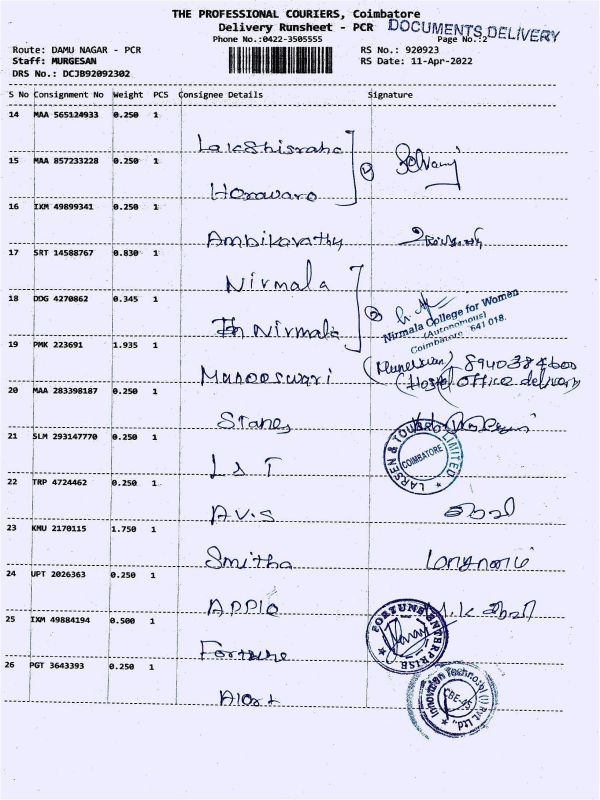 THE PROFESSIONAL COURIERS, Coimbatore
Delivery Runsheet - PCR
DOCUMENTS DELIVERY
Phone No.:0422-3505555 Page No.:2
Route: DAMU NAGAR - PCR RS No.: 920923
Staff: MURGESAN RS Date: 11-Apr-2022
DRS No.: DCJB92092302
S No Consignment No Weight PCS Consignee Details Signature
14 MAA 565124933 0.250 1
15 MAA 857233228 0.250 1
16 IXM 49899341 0.250 1
Ambikavathy
17 SRT 14588767 0.830 1
Nirmala
18 DDG 4270862 0.345 1
Nirmala
Nirmala College for Women
(Autonomous)
Coimbatore - 641 018.
19 PMK 223691 1.935 1
8940384600
(Hostel office delivery
20 MAA 283398187 0.250 1
Stanes
21 SLM 293147770 0.250 1
L&T
LARSEN & TOUBRO LIMITED
COIMBATORE
22 TRP 4724462 0.250 1
A.V.S
23 KMU 2170115 1.750 1
Smitha
24 UPT 2026363 0.250 1
25 IXM 49884194 0.500 1
Fortune
FORTUNE ENTERPRISE
26 PGT 3643393 0.250 1
Alert